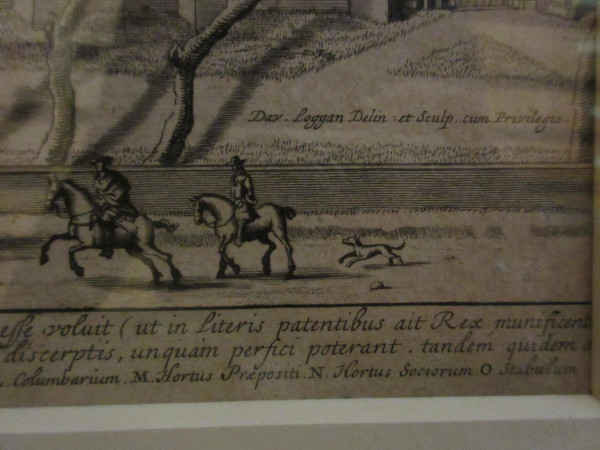 Dav. Loggan Delin et Sculp. cum Privilegio.
esse voluit (ut in Literis patentibus ait Rex munificent
discerptis, unquam perfici poterant. tandem quidem
Columbarium. M. Hortus Præpositi. N. Hortus Sociorum O Stabulum